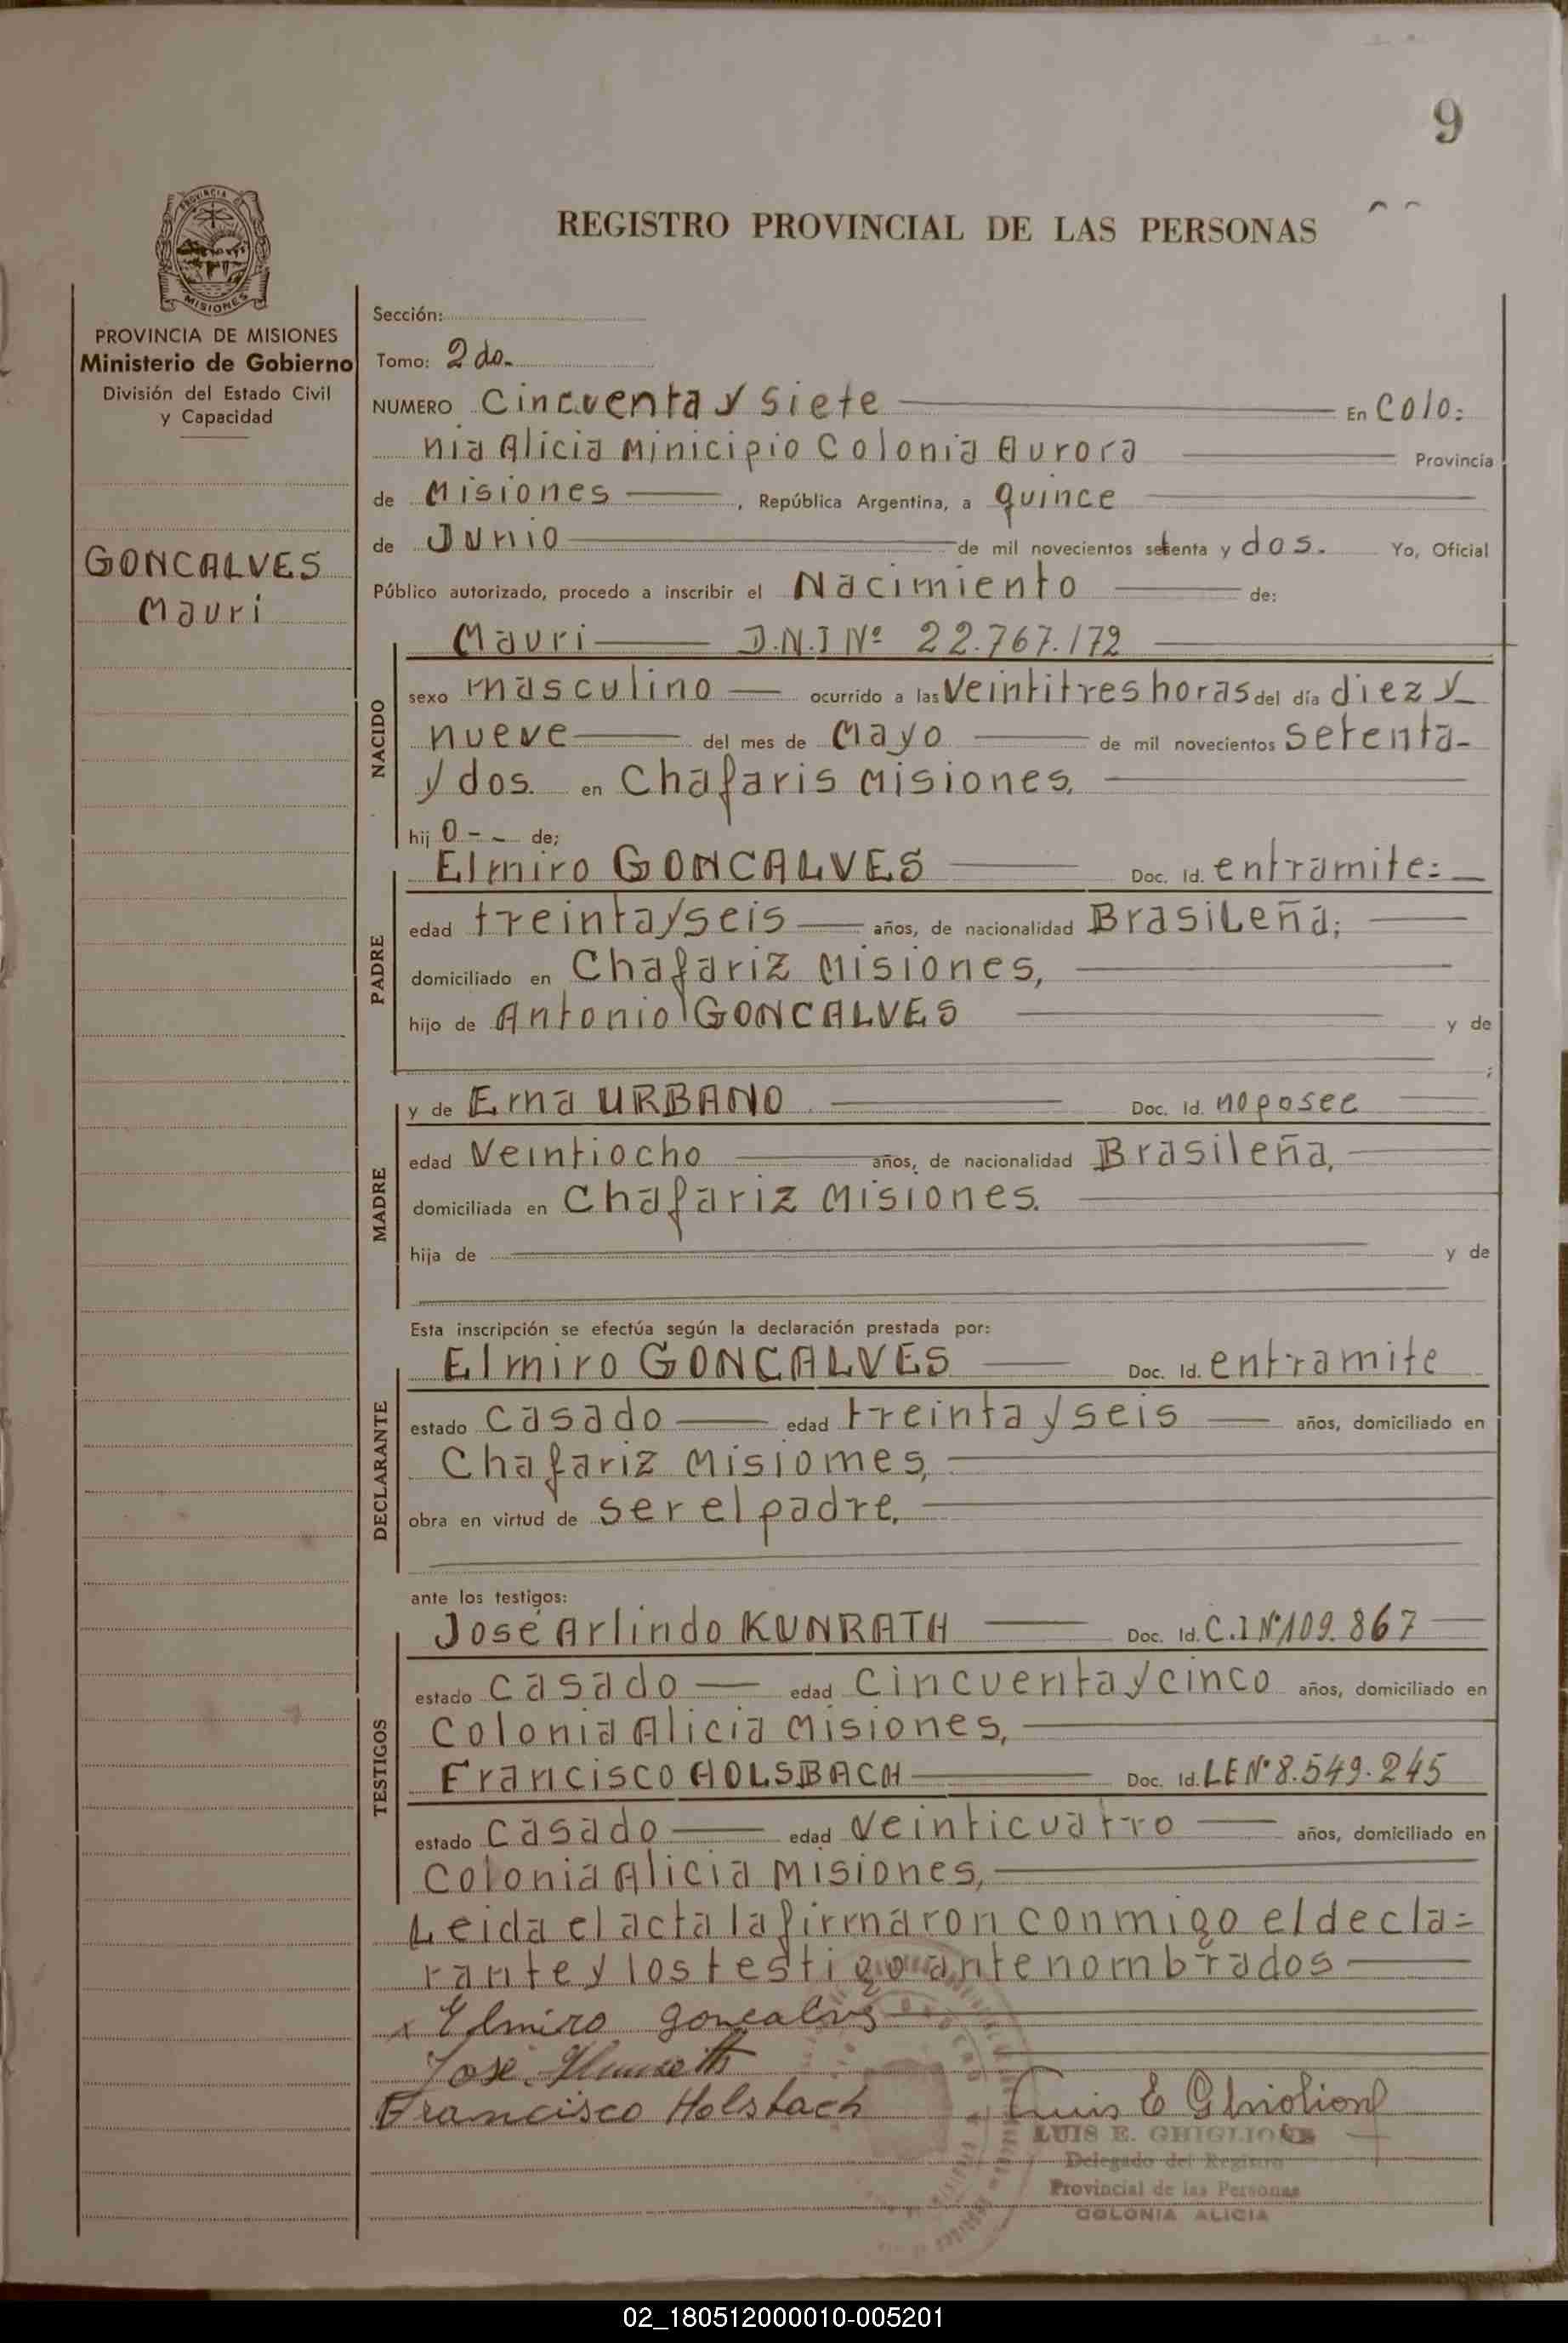 9
REGISTRO PROVINCIAL DE LAS PERSONAS
PROVINCIA
MISIONES
PROVINCIA DE MISIONES
Ministerio de Gobierno
División del Estado Civil
y Capacidad
GONCALVES
Mauri
Sección:
Tomo: 2do.
NUMERO Cincuenta y siete En Colo=
nia Alicia Minicipio Colonia Aurora Provincia
de Misiones, República Argentina, a quince
de Junio de mil novecientos setenta y dos. Yo, Oficial
Público autorizado, procedo a inscribir el Nacimiento de:
NACIDO
Mauri D.N.I Nº 22.767.172
sexo masculino ocurrido a las Veintitres horas del día diez y
nueve del mes de Mayo de mil novecientos setenta-
y dos. en Chafaris Misiones,
hij o-- de;
PADRE
Elmiro GONCALVES Doc. Id. entramite=
edad treinta y seis años, de nacionalidad Brasileña;
domiciliado en Chafariz Misiones,
hijo de Antonio GONCALVES y de
;
MADRE
y de Erna URBANO Doc. Id. no posee
edad Veintiocho años, de nacionalidad Brasileña,
domiciliada en Chafariz Misiones.
hija de y de
Esta inscripción se efectúa según la declaración prestada por:
DECLARANTE
Elmiro GONCALVES Doc. Id. entramite
estado Casado edad treinta y seis años, domiciliado en
Chafariz Misiomes,
obra en virtud de ser el padre,
ante los testigos:
TESTIGOS
José Arlindo KUNRATH Doc. Id. C.I Nº109.867
estado Casado edad Cincuenta y cinco años, domiciliado en
Colonia Alicia Misiones,
Francisco HOLSBACH Doc. Id. LE Nº 8.549.245
estado Casado edad Veinticuatro años, domiciliado en
Colonia Alicia Misiones,
Leida el acta la firmaron conmigo el decla=
rante y los testigo antenombrados
x Elmiro goncalves
José
Francisco Holsbach Luis E Ghiglione
LUIS E. GHIGLIONE
Delegado del Registro
Provincial de las Personas
COLONIA ALICIA
02_180512000010-005201